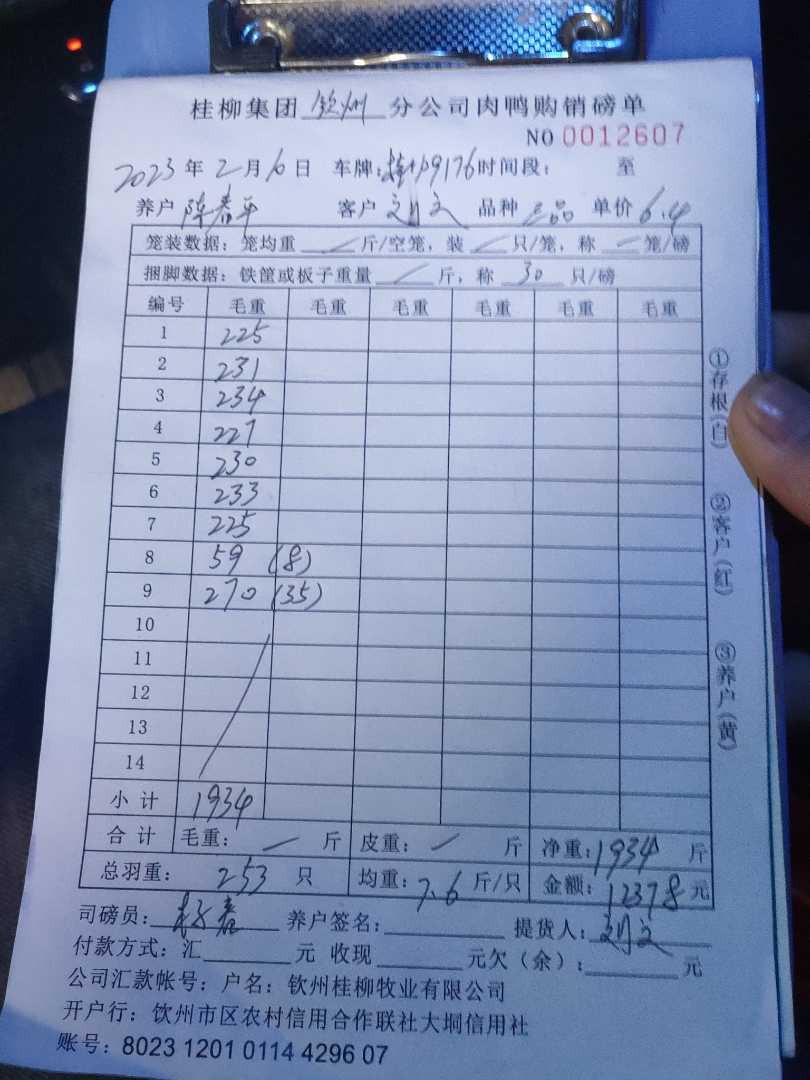 桂柳集团 钦州 分公司肉鸭购销磅单
NO 0012607
2023年2月6日 车牌: 9176 时间段: 至
养户 陈春平 客户 刘文 品种 三品 单价 6.4
笼装数据: 笼均重 / 斤/空笼, 装 / 只/笼, 称 / 笼/磅
捆脚数据: 铁筐或板子重量 / 斤, 称 30 只/磅
编号 毛重 毛重 毛重 毛重 毛重 毛重
1 225
2 231
3 234
4 227
5 230
6 233
7 225
8 59 (8)
9 270 (35)
10
11
12
13
14
小计 1934
合计 毛重: / 斤 皮重: / 斤 净重: 1934 斤
总羽重: 253 只 均重: 7.6 斤/只 金额: 12378 元
司磅员: 养户签名: 提货人: 刘文
付款方式: 汇 元 收现 元欠(余): 元
公司汇款帐号: 户名: 钦州桂柳牧业有限公司
开户行: 钦州市区农村信用合作联社大垌信用社
账号: 8023 1201 0114 4296 07
①存根(白) ②客户(红) ③养户(黄)